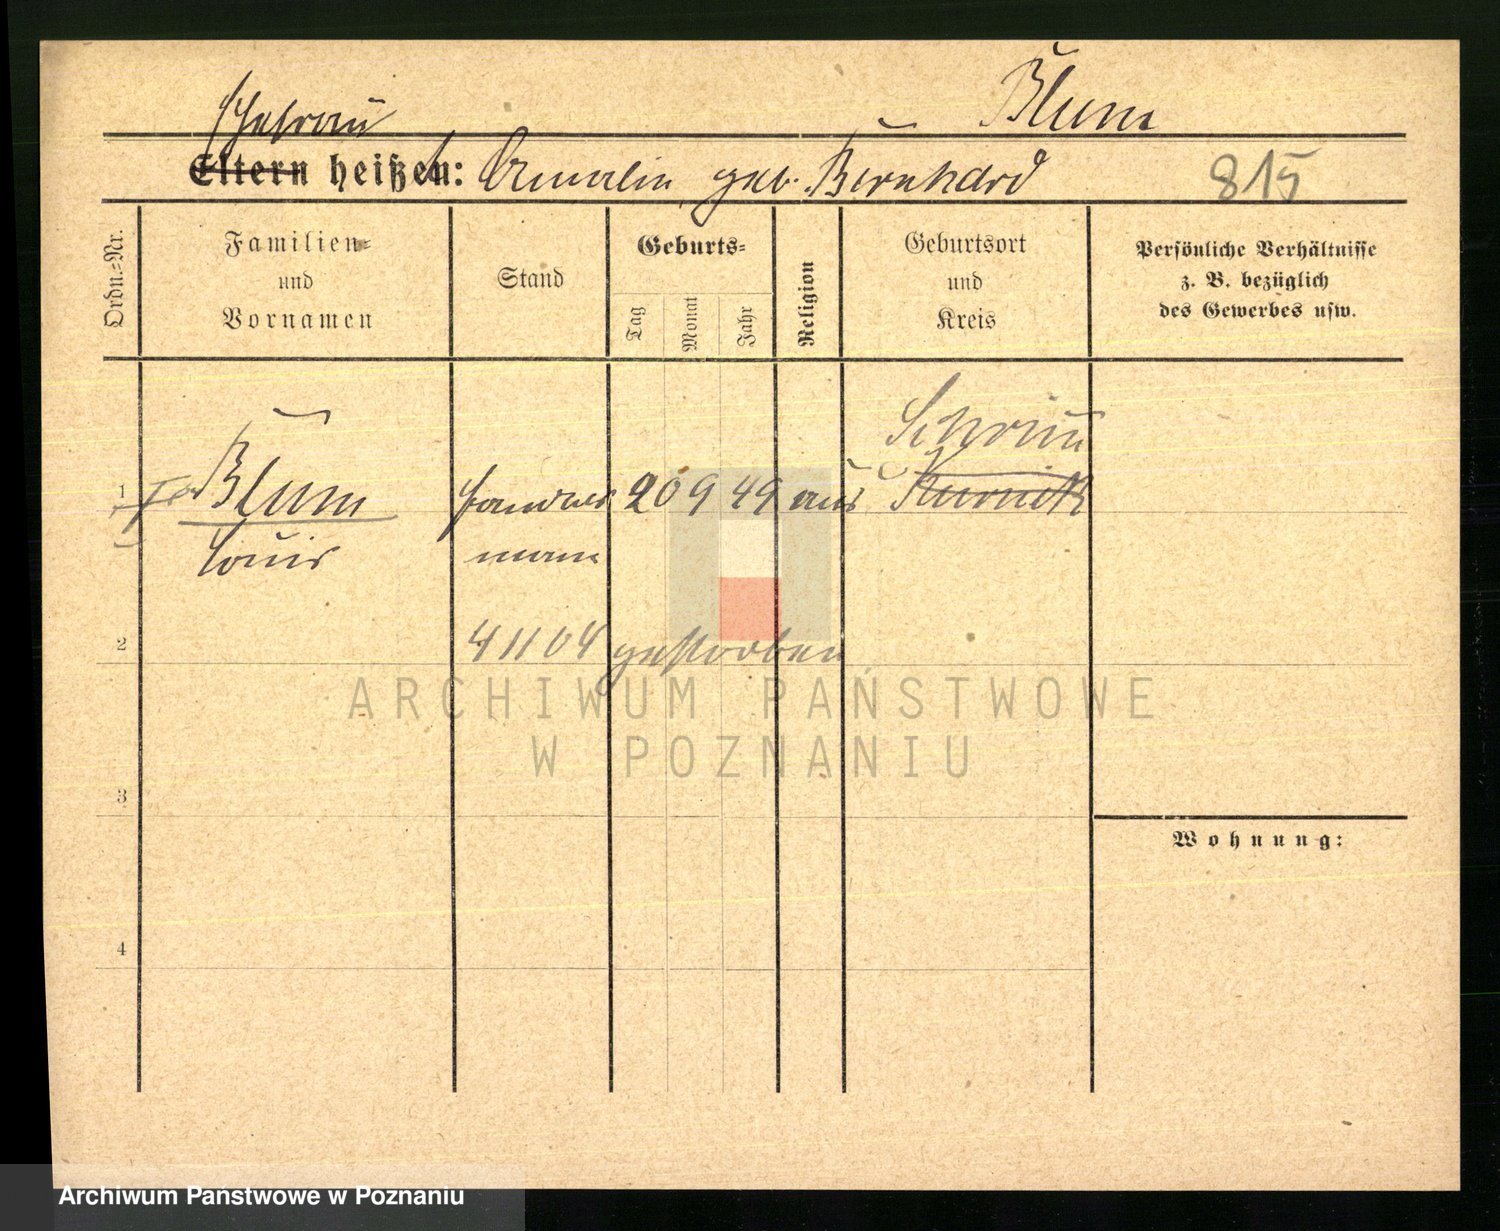 Blum
Ehefrau
Eltern heißt: Amalie geb. Bernhard 815
Ordn.=Nr.
Familien=
und
Vornamen
Stand
Geburts=
Tag
Monat
Jahr
Religion
Geburtsort
und
Kreis
Persönliche Verhältnisse
z. B. bezüglich
des Gewerbes usw.
Schrim
1 Blum 20 9 49 Kurnik
Louis mann
2 4 11 04 gestorben
ARCHIWUM PAŃSTWOWE
W POZNANIU
3
Wohnung:
4
Archiwum Państwowe w Poznaniu